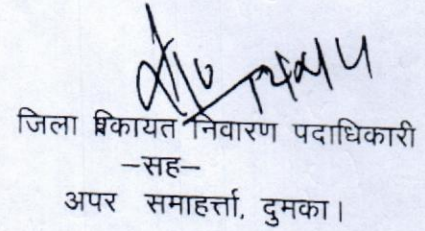 जिला शिकायत निवारण पदाधिकारी
–सह–
अपर समाहर्त्ता, दुमका।